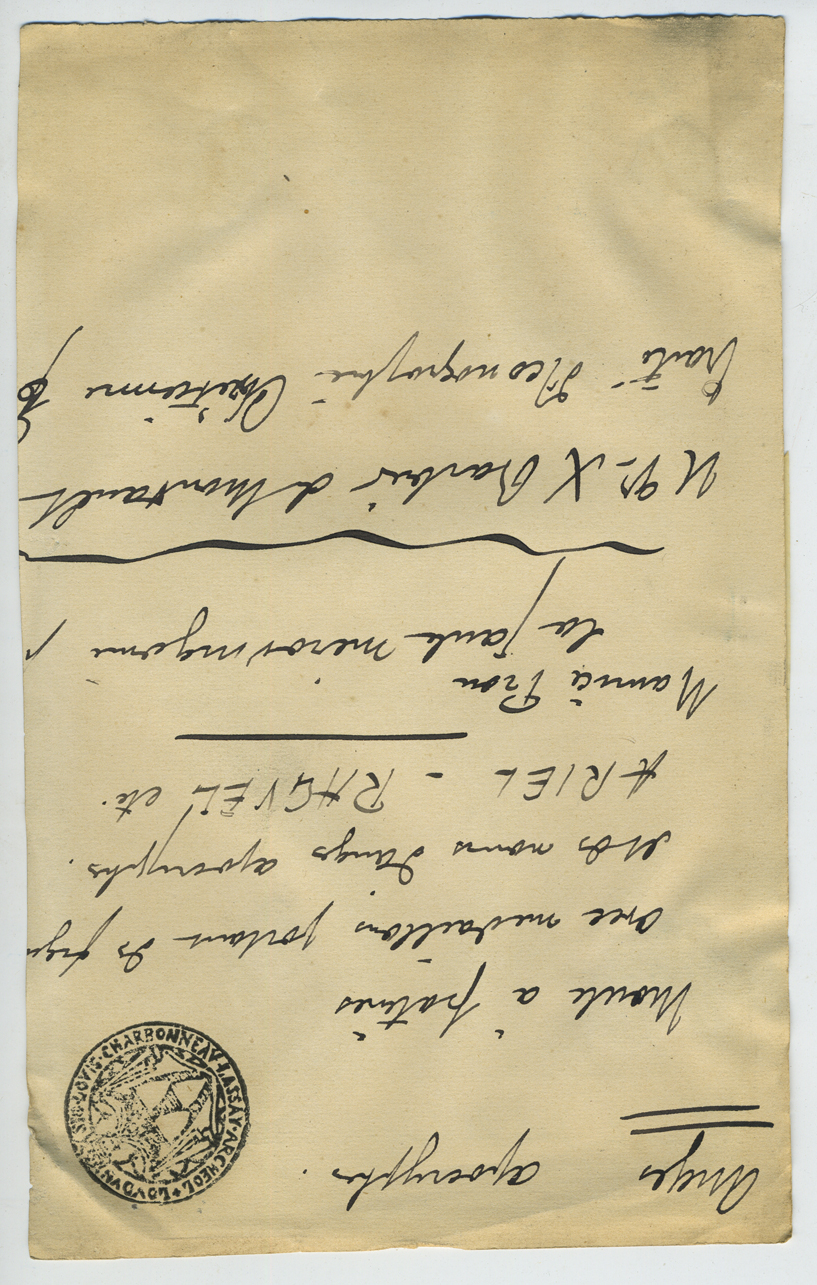 Anges apocryphes.
Moule à patines
avec médaillons portant des figu
et des noms d'anges apocryphes.
ARIEL - RAGVEL etc.
Maurice Pron
la faute mérovingienne
X Barbier de Montault
Traité d'Iconographie Chrétienne
LOVIS·CHARBONNEAV·LASSAY·ARCHEOL+LOVDVN